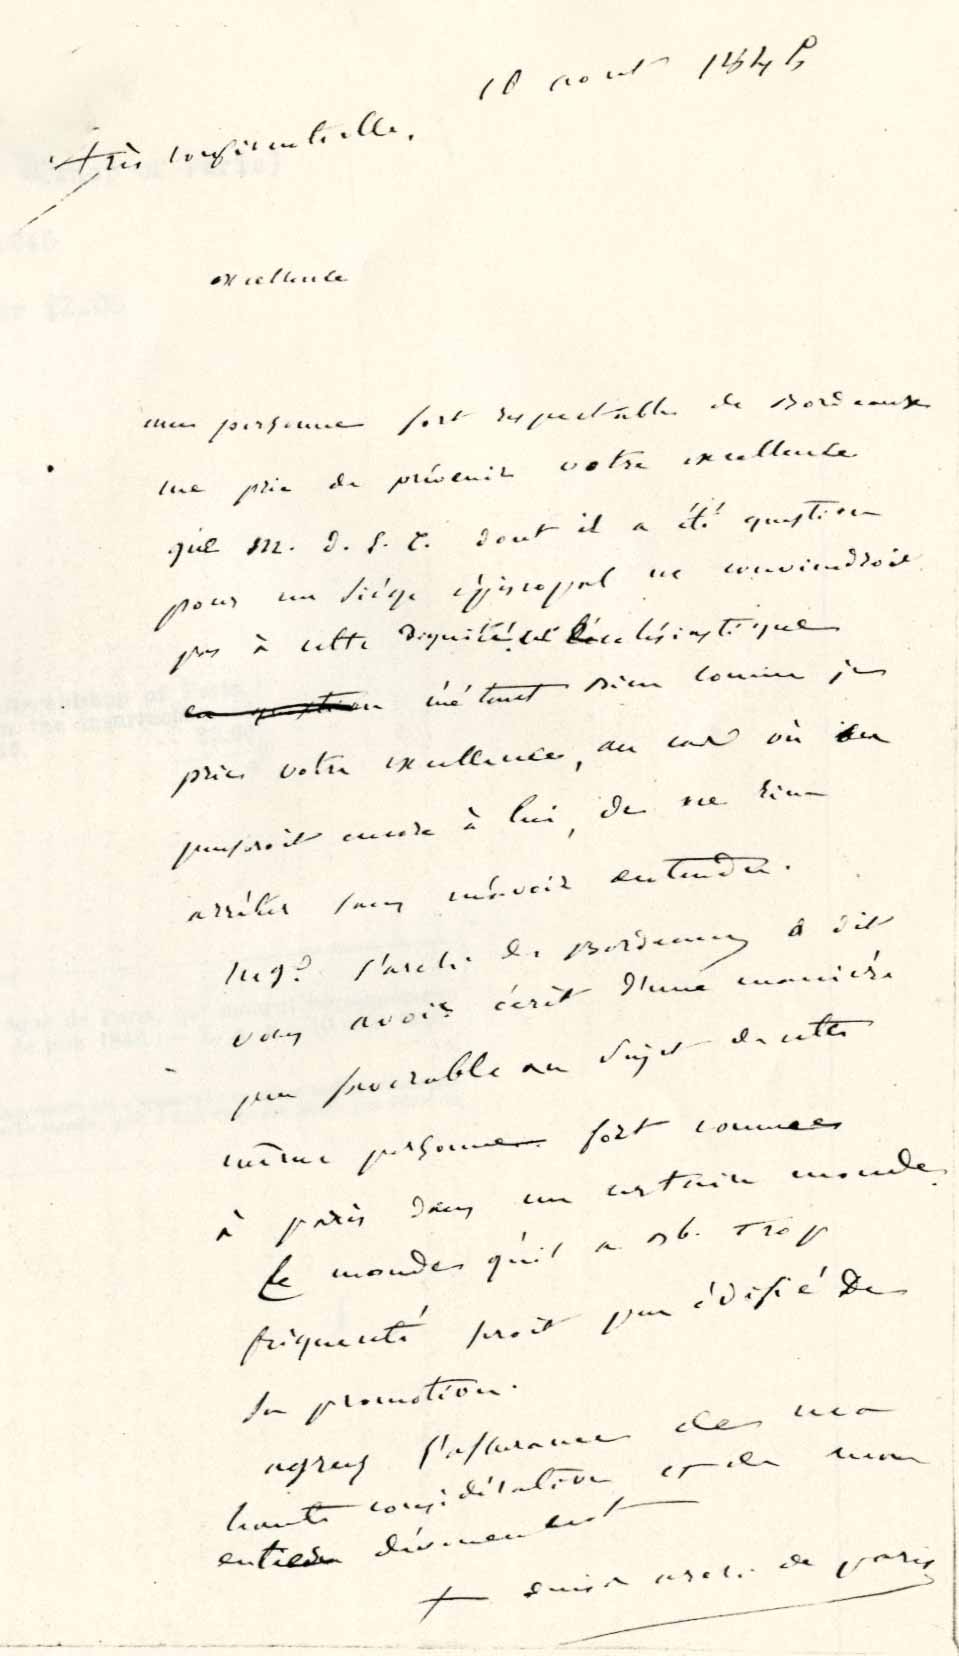 10 aout 184
très confidentielle.
excellence
une personne fort respectable de Bordeaux
me prie de prévenir votre excellence
que M. d. S. C. dont il a été question
pour un siége épiscopal ne conviendroit
pas à cette dignité ecclésiastique
en question m'étant bien connu je
prie votre excellence, au cas où
penseroit encore à lui, de ne rien
arrêter sans m'avoir entendu.
Mgr l'arch. de Bordeaux a dit
vous avoir écrit d'une manière
peu favorable au sujet de cette
même personne fort connue
à paris dans un certain monde.
Le monde qu'il a trop
fréquenté seroit peu édifié de
sa promotion.
agreez l'assurance de ma
haute considération et de mon
entier dévouement
+ denis arch. de paris